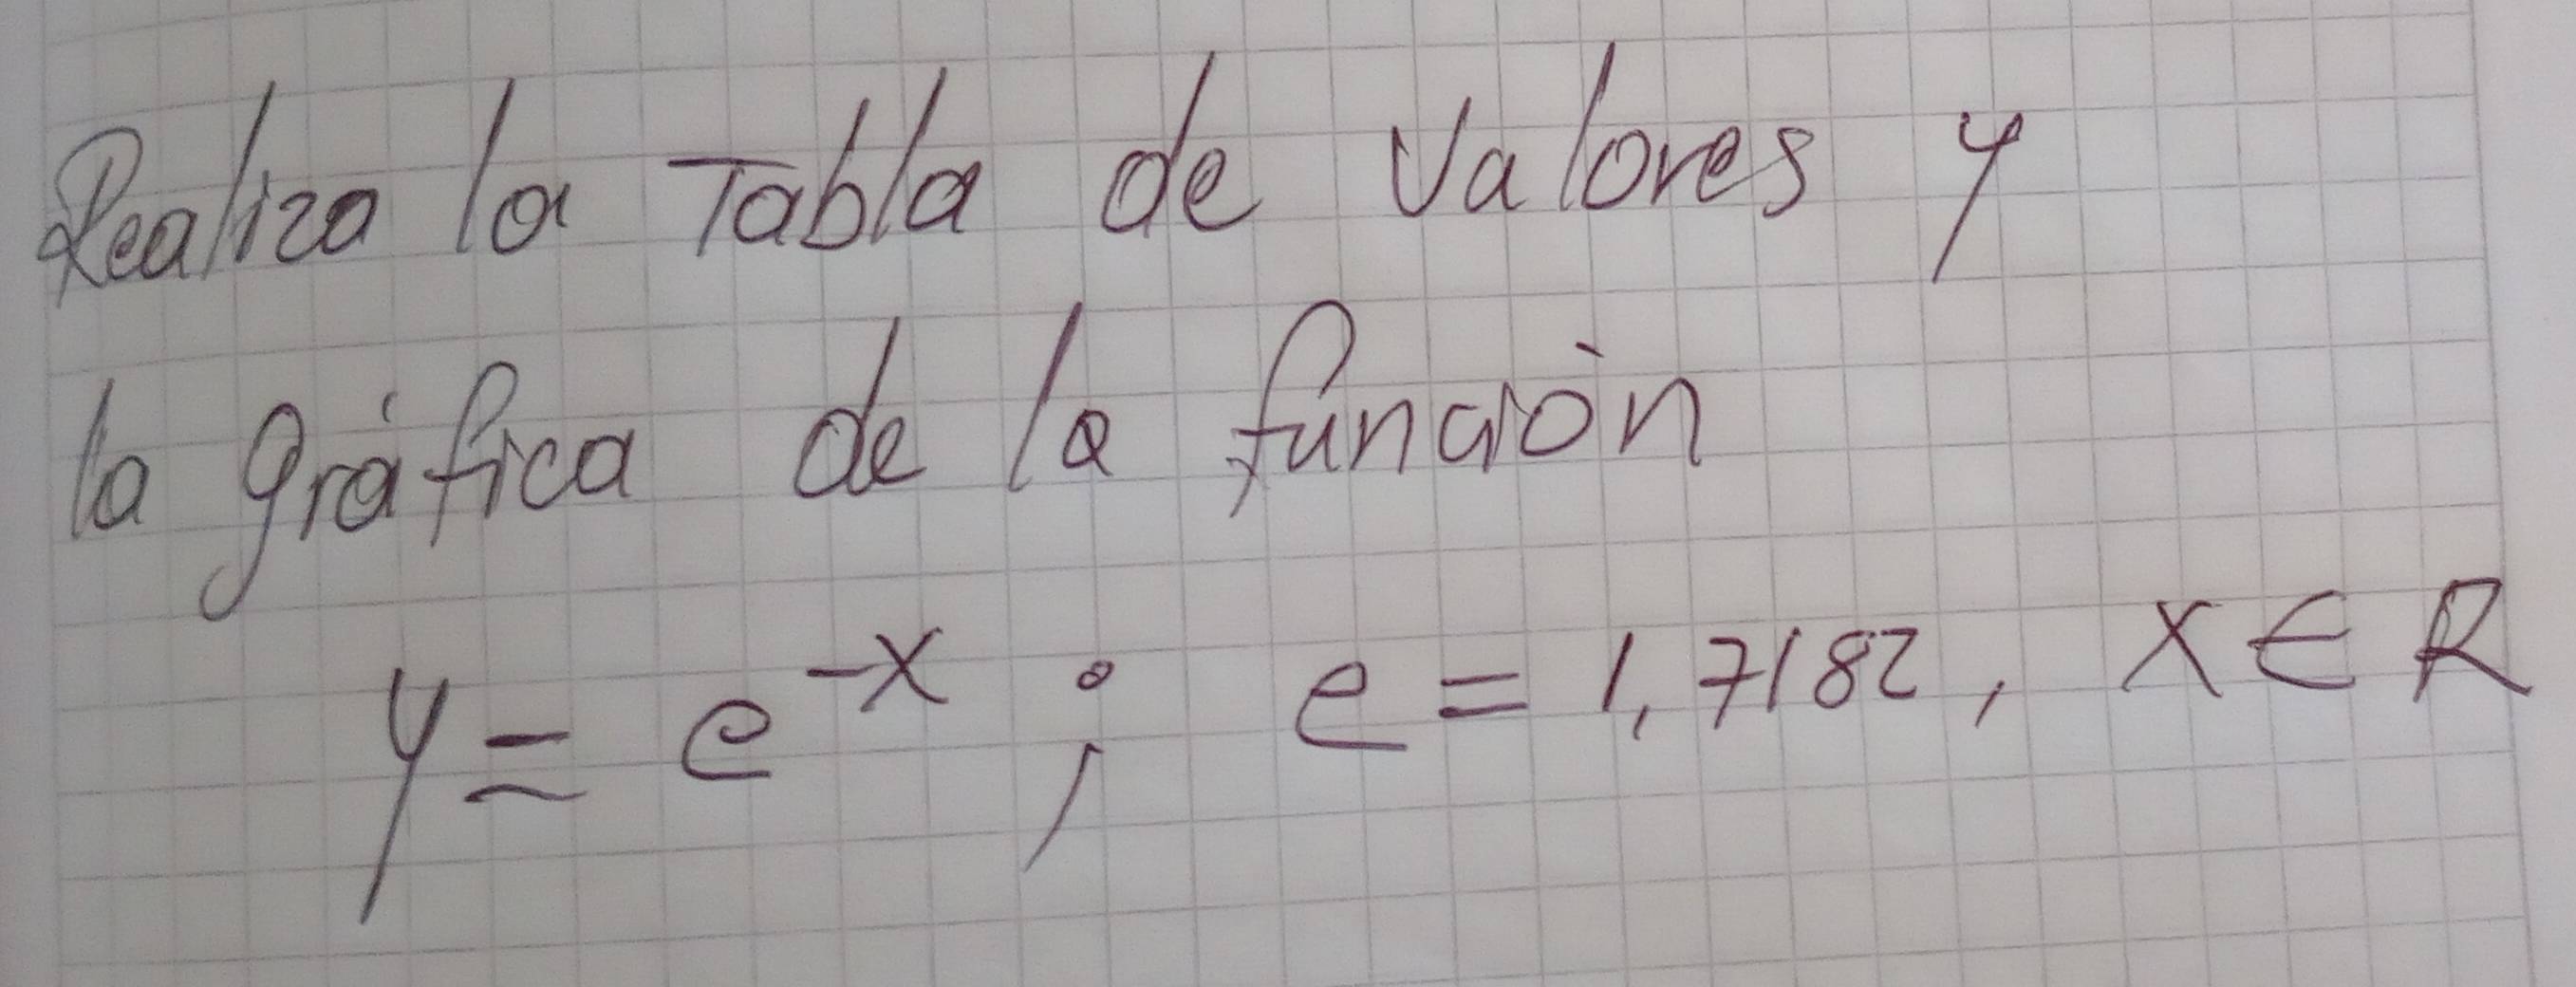 Realizo la Tabla de Valores y
la gráfica de la función
y = e^-x ; e = 1,7182, x ∈ R